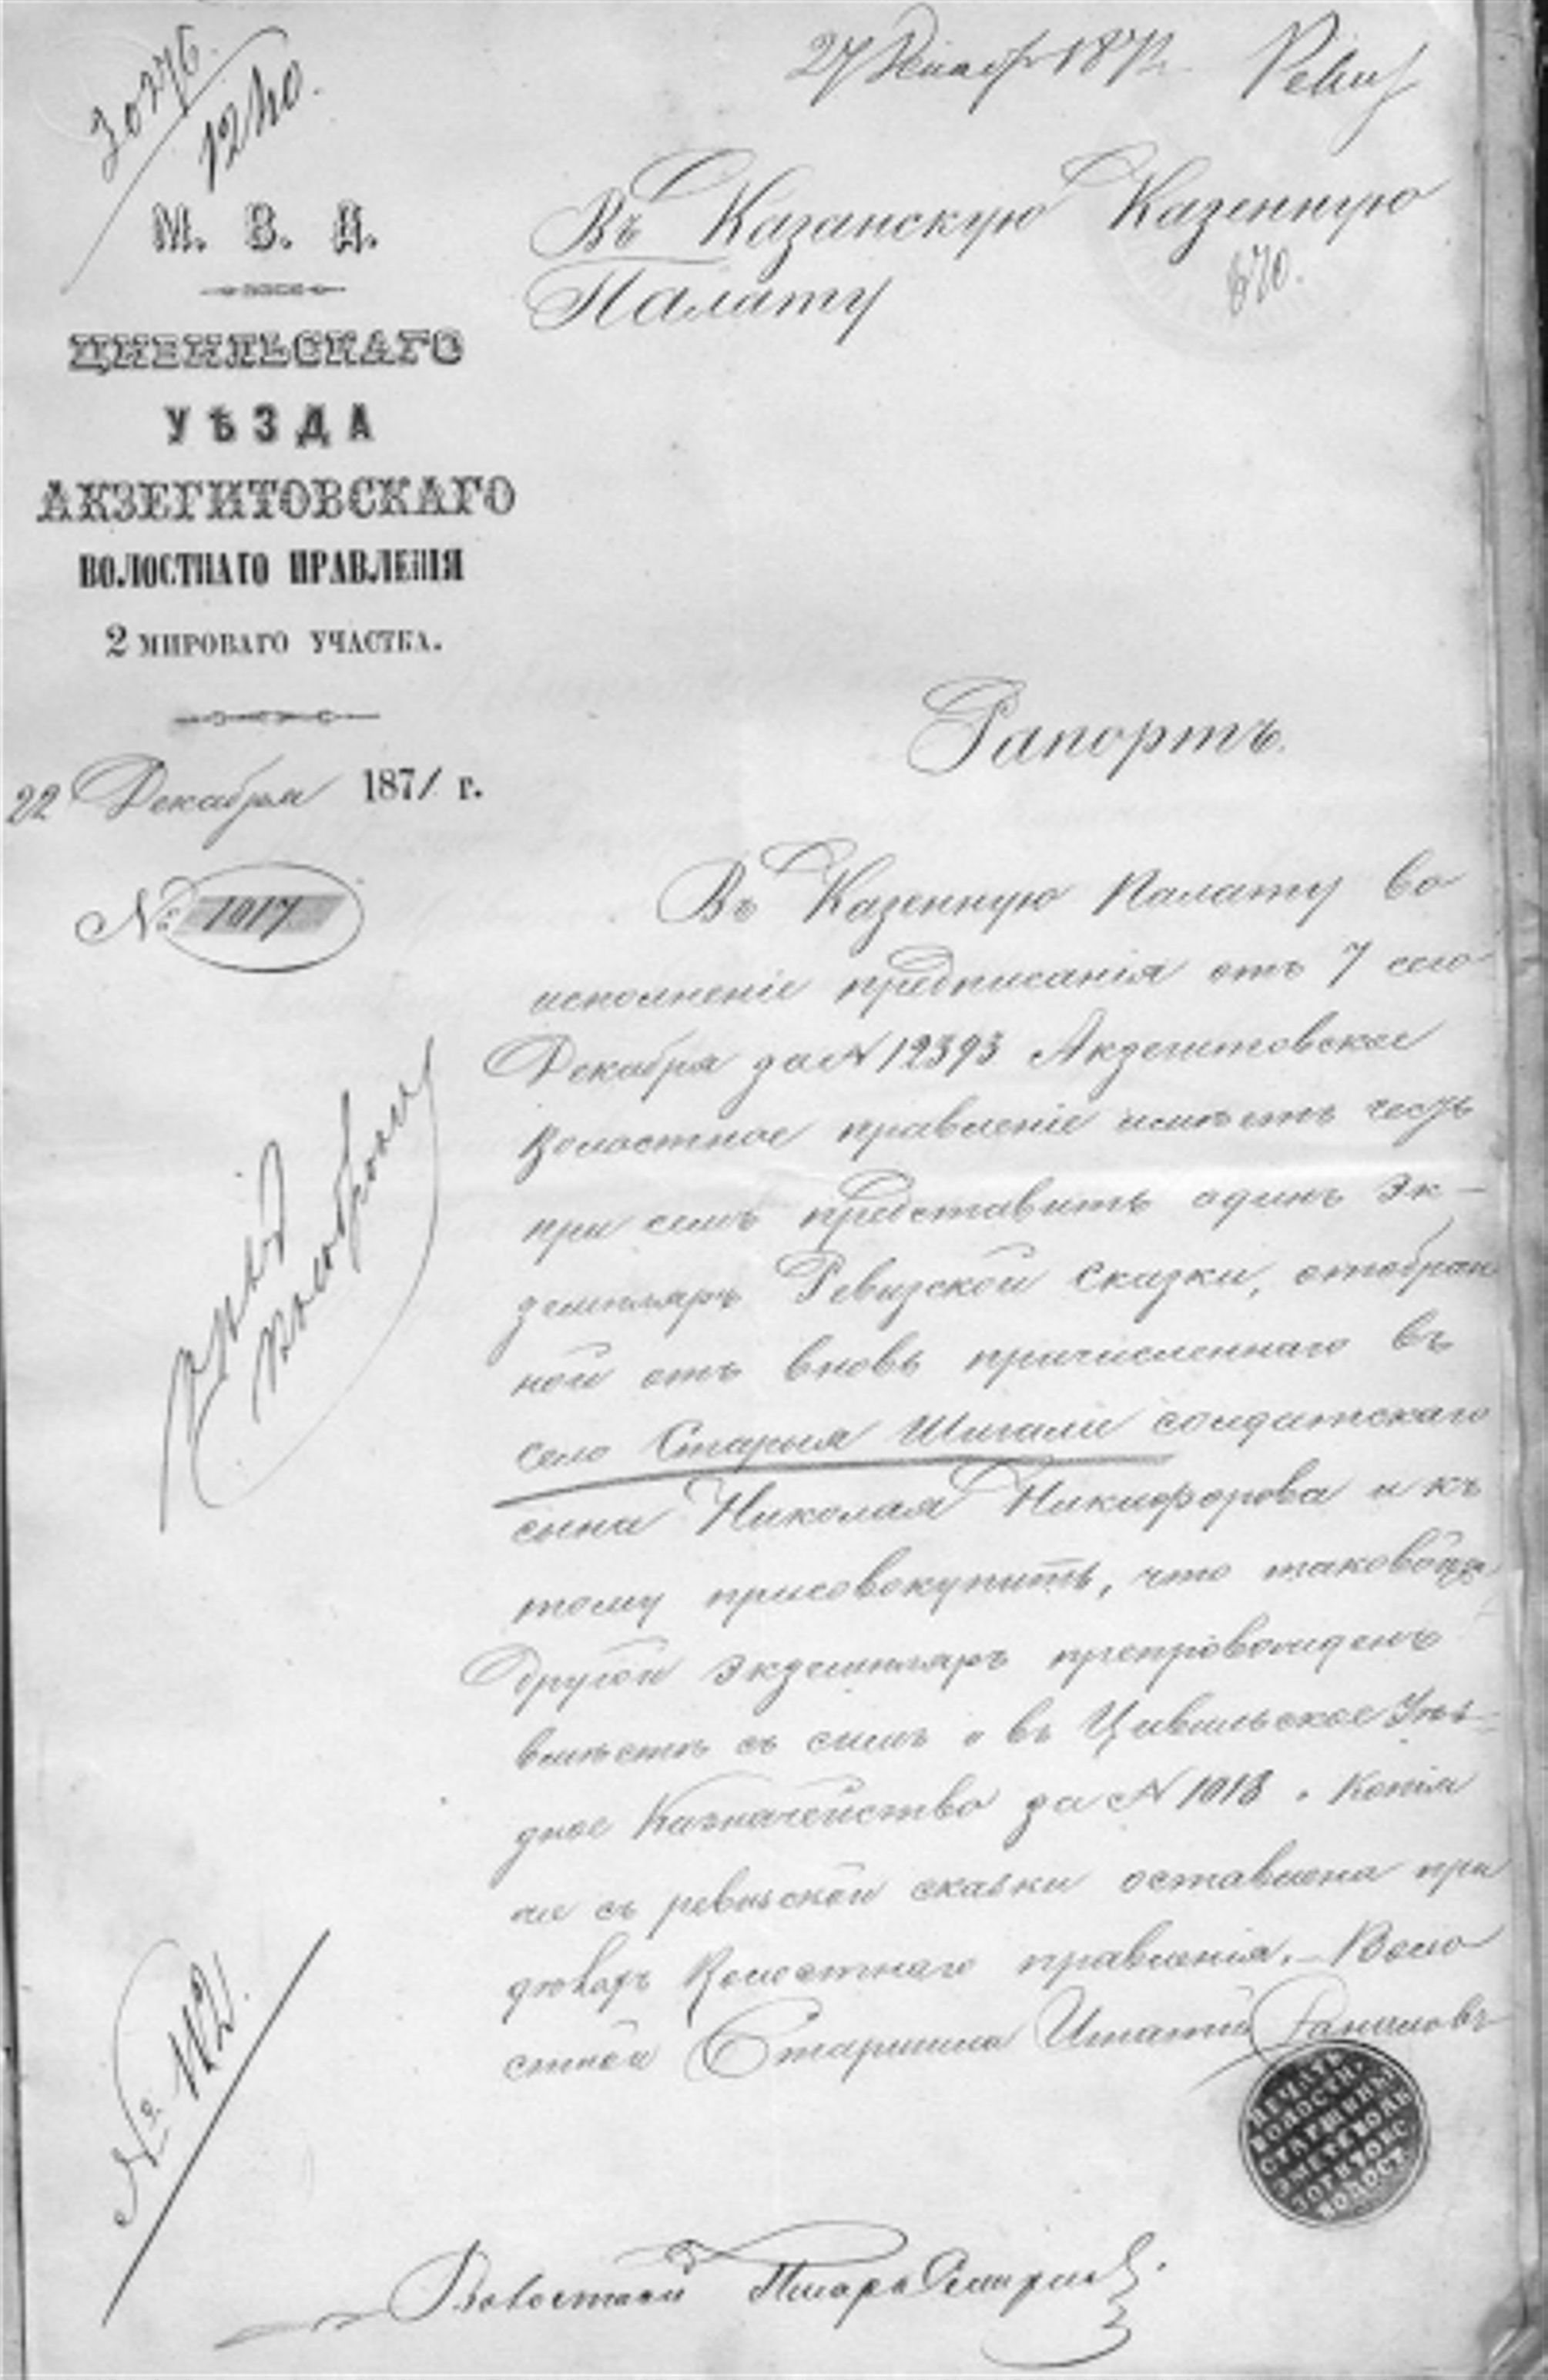 27 Декабр 1871 Ревиз
30276
12410.
М. В. Д.
ЦИВИЛЬСКАГО
УѢЗДА
АКЗЕГИТОВСКАГО
ВОЛОСТНАГО ПРАВЛЕНІЯ
2 МИРОВАГО УЧАСТКА.
22 Декабря 1871 г.
№ 1017
Въ Казанскую Казенную
Палату
670.
Рапортъ.
Въ Казенную Палату во
исполненіе предписанія отъ 7 сего
Декабря за № 12393 Акзегитовское
Волостное правленіе имѣетъ честь
при семъ представить одинъ эк-
земпляръ Ревизской сказки, отобран
ной отъ вновь причисленнаго въ
село Старыя Шигали солдатскаго
сына Николая Никифорова и къ
тому присовокупить, что таковой же
другой экземпляръ препровожденъ
вмѣстѣ съ симъ и въ Цивильское Уѣз-
дное Казначейство за № 1018. Копія
же съ ревизской сказки оставлена при
дѣлахъ Волостнаго правленія. – Воло
стной Старшина Игнатій
ПЕЧАТЬ
ВОЛОСТН.
СТАРШИНЫ
ВОЛОСТ.
№ 1121.
Волостной Писарь